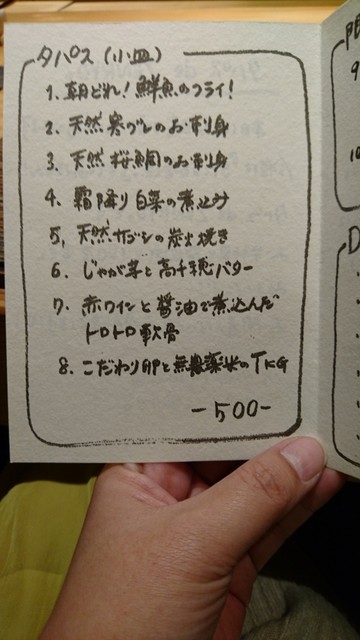 タパス(小皿)
1. 朝どれ!鮮魚のフライ!
2. 天然寒グレのお刺身
3. 天然桜鯛のお刺身
4. 霜降り白菜の煮込み
5. 天然サゴシの炭火焼き
6. じゃが芋と高千穂バター
7. 赤ワインと醤油で煮込んだ
トロトロ軟骨
8. こだわり卵と無農薬米のTKG
-500-
9
10
D